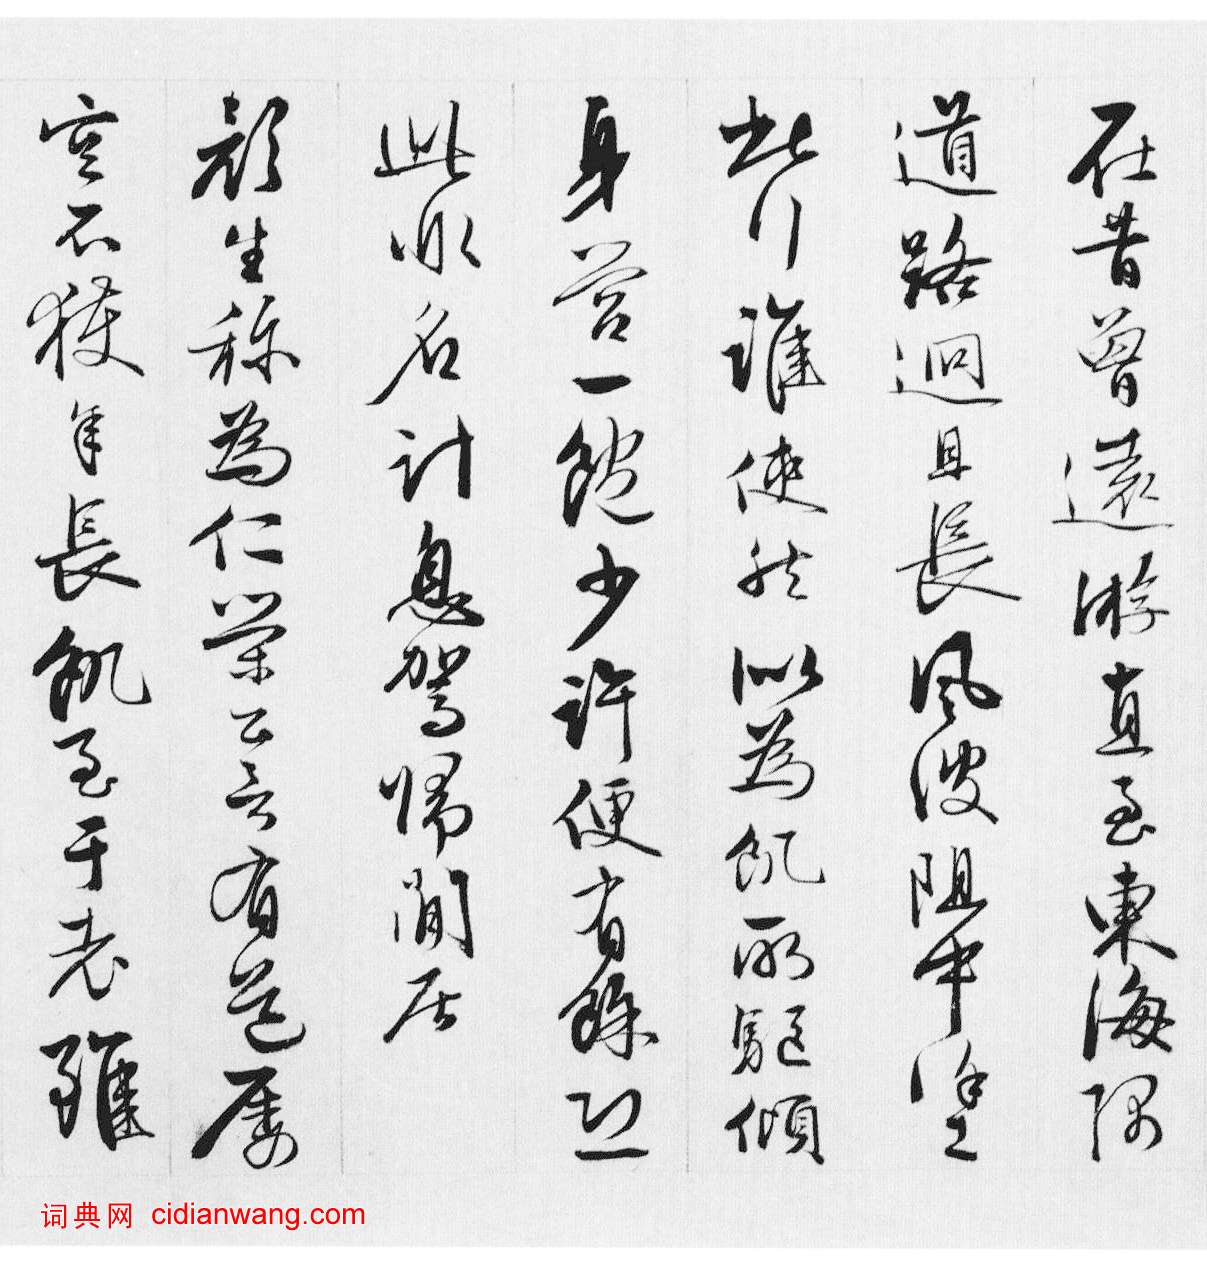 在昔曾遠游直至東海隅
道路迥且長風波阻中塗
此行誰使然似為飢所驅傾
身營一飽少許便有餘恐
此非名計息駕歸閒居
顏生稱為仁榮公言有道屢
空不獲年長飢至于老雖
词典网 cidianwang.com